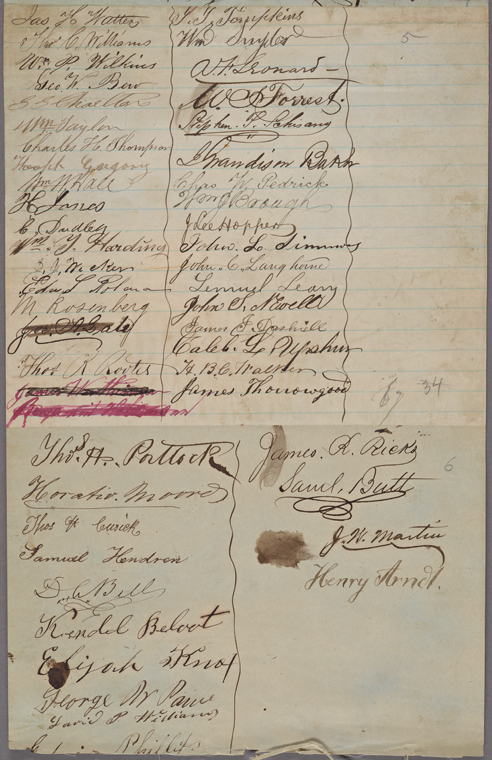 Jas. H. Hatter
Thos. C. Williams
Wm. P. Wilkins
Geo W. Bew
Wm Taylor
Charles H. Thompson
Joseph Gregory
Wm. W. Hall
H. Jones
E. Dudley
Wm. Y. Harding
M. Rosenberg
Thos R Royter
T. T. Tompkins
Wm
A. F. Leonard
W. S. Forrest.
Stephen P.
J Grandison
Chas W. Pedrick
Wm J Brough
J Lee Hopper
John. L. Timmes
John. C. Langhorne
Lemuel Leary
John S. Newell
James F. Dashiell
Caleb. L. Upshur
H. B. C. Walker
James Thorowgood
5
34
Thos. H. Pollock
Horatio Moore
Thos F Cusick
Samuel Hendren
D. C. Bell
Kendel Beloot
Elijah Knox
George W Paine
David P Williams
Phillips
James. R. Ricks
Saml. Butt
6
J. W. Martin
Henry Arndt.